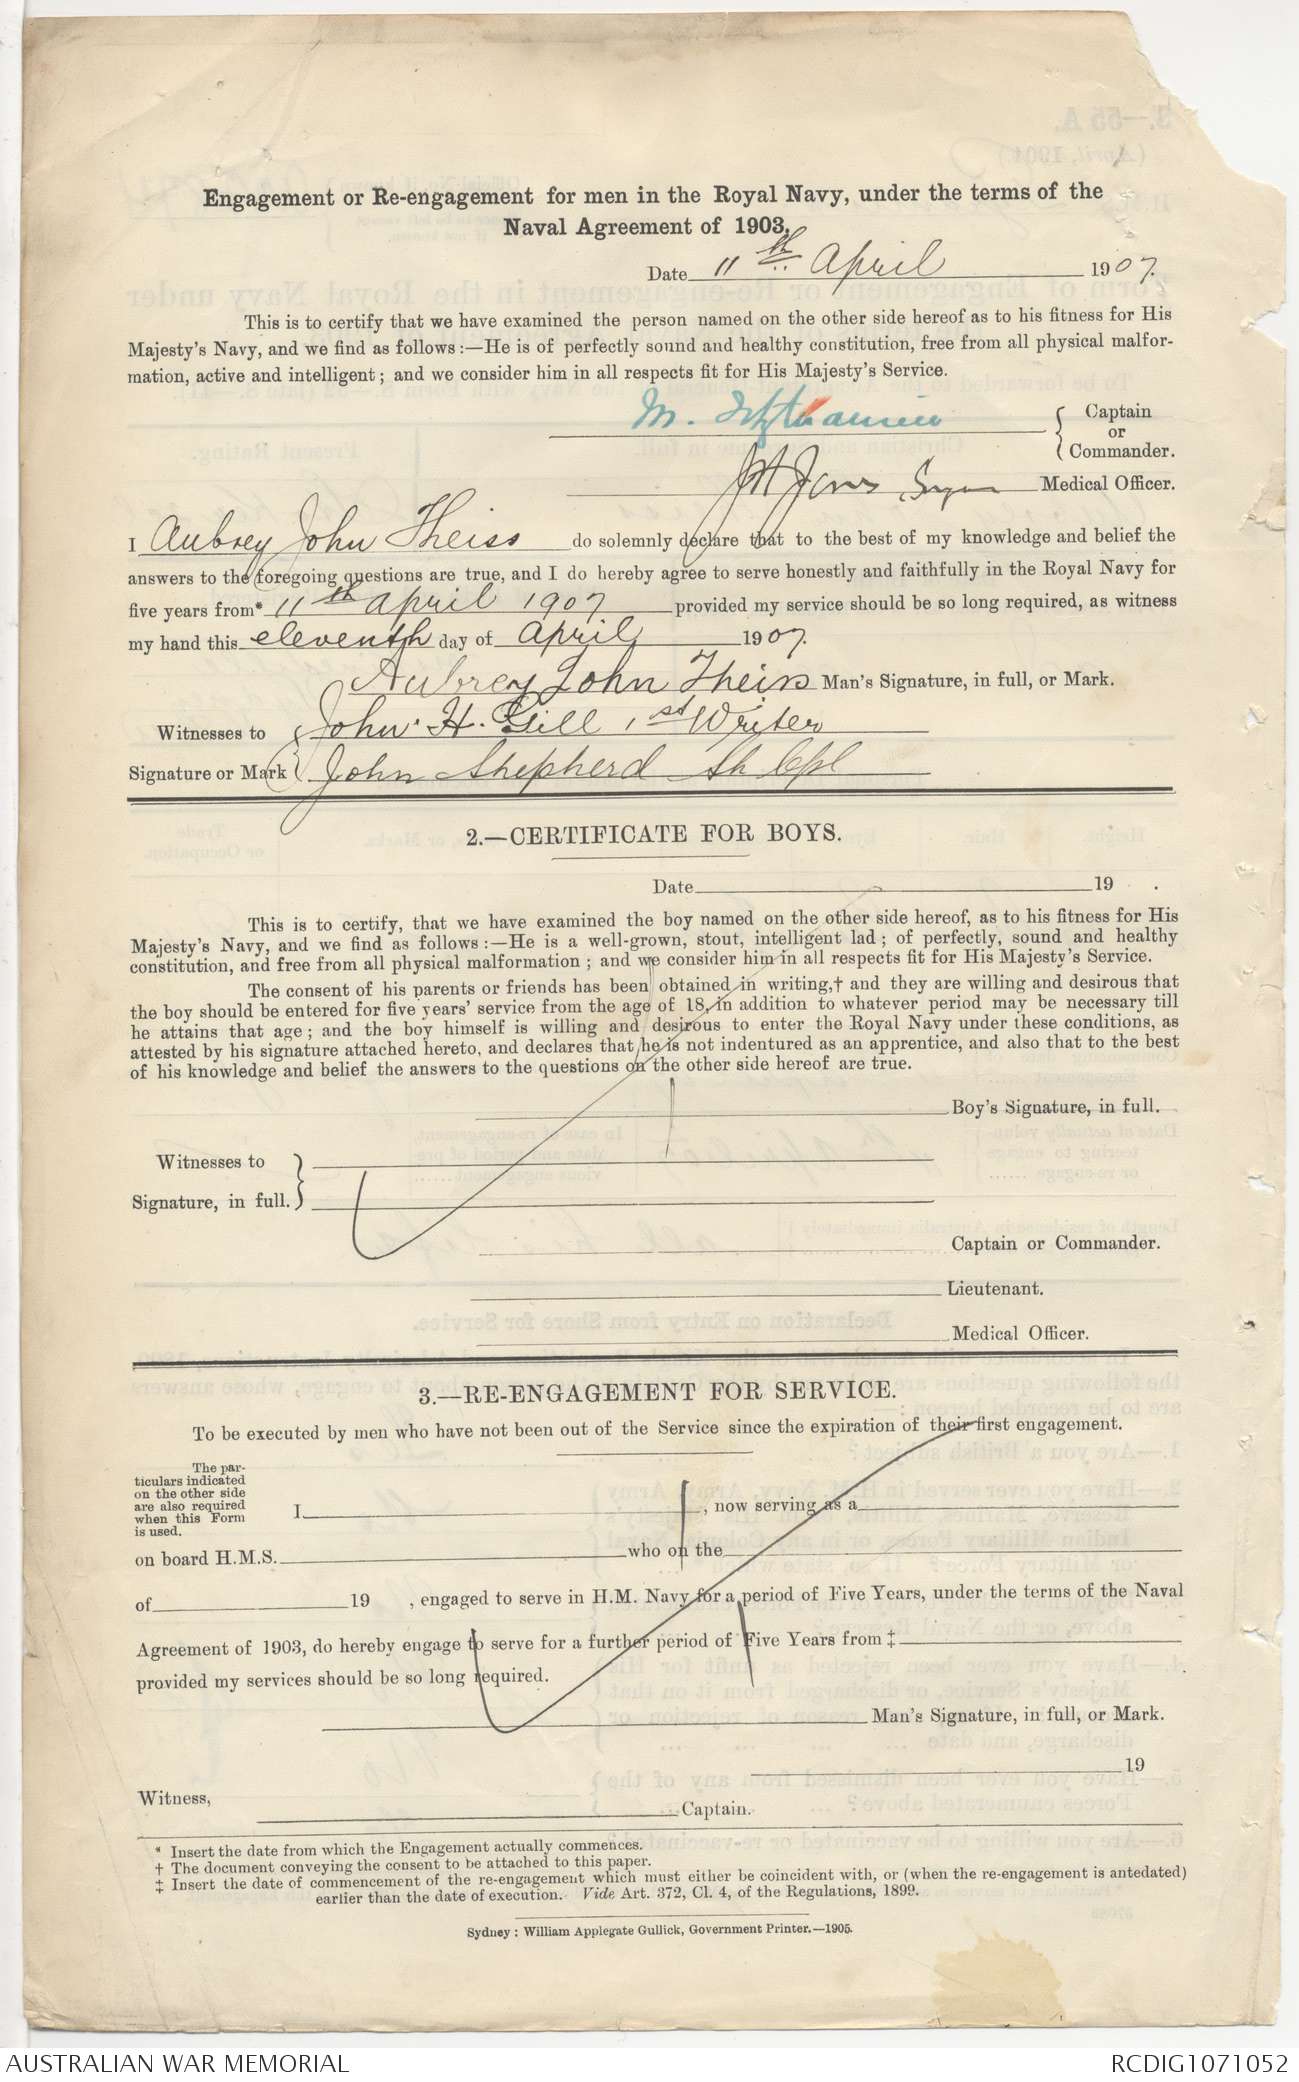 Engagement or Re-engagement for men in the Royal Navy, under the terms of the
Naval Agreement of 1903.
Date 11th April 1907.
This is to certify that we have examined the person named on the other side hereof as to his fitness for His
Majesty's Navy, and we find as follows:—He is of perfectly sound and healthy constitution, free from all physical malfor-
mation, active and intelligent; and we consider him in all respects fit for His Majesty's Service.
M. { Captain
or
Commander.
J H Jones, Medical Officer.
I Aubrey John Theiss do solemnly declare that to the best of my knowledge and belief the
answers to the foregoing questions are true, and I do hereby agree to serve honestly and faithfully in the Royal Navy for
five years from* 11th April 1907 provided my service should be so long required, as witness
my hand this eleventh day of April 1907.
Aubrey John Theiss Man's Signature, in full, or Mark.
Witnesses to { John H. Gill 1st Writer
Signature or Mark John Shepherd Sh Cpl
2.—CERTIFICATE FOR BOYS.
Date 19 .
This is to certify, that we have examined the boy named on the other side hereof, as to his fitness for His
Majesty's Navy, and we find as follows:—He is a well-grown, stout, intelligent lad; of perfectly, sound and healthy
constitution, and free from all physical malformation; and we consider him in all respects fit for His Majesty's Service.
The consent of his parents or friends has been obtained in writing,† and they are willing and desirous that
the boy should be entered for five years' service from the age of 18, in addition to whatever period may be necessary till
he attains that age; and the boy himself is willing and desirous to enter the Royal Navy under these conditions, as
attested by his signature attached hereto, and declares that he is not indentured as an apprentice, and also that to the best
of his knowledge and belief the answers to the questions on the other side hereof are true.
Boy's Signature, in full.
Witnesses to
Signature, in full. }
Captain or Commander.
Lieutenant.
Medical Officer.
3.—RE-ENGAGEMENT FOR SERVICE.
To be executed by men who have not been out of the Service since the expiration of their first engagement.
The par-
ticulars indicated
on the other side
are also required
when this Form
is used.
I , now serving as a
on board H.M.S. who on the
of 19 , engaged to serve in H.M. Navy for a period of Five Years, under the terms of the Naval
Agreement of 1903, do hereby engage to serve for a further period of Five Years from ‡
provided my services should be so long required.
Man's Signature, in full, or Mark.
19
Witness,
Captain.
* Insert the date from which the Engagement actually commences.
† The document conveying the consent to be attached to this paper.
‡ Insert the date of commencement of the re-engagement which must either be coincident with, or (when the re-engagement is antedated)
earlier than the date of execution. Vide Art. 372, Cl. 4, of the Regulations, 1899.
Sydney: William Applegate Gullick, Government Printer.—1905.
AUSTRALIAN WAR MEMORIAL
RCDIG1071052